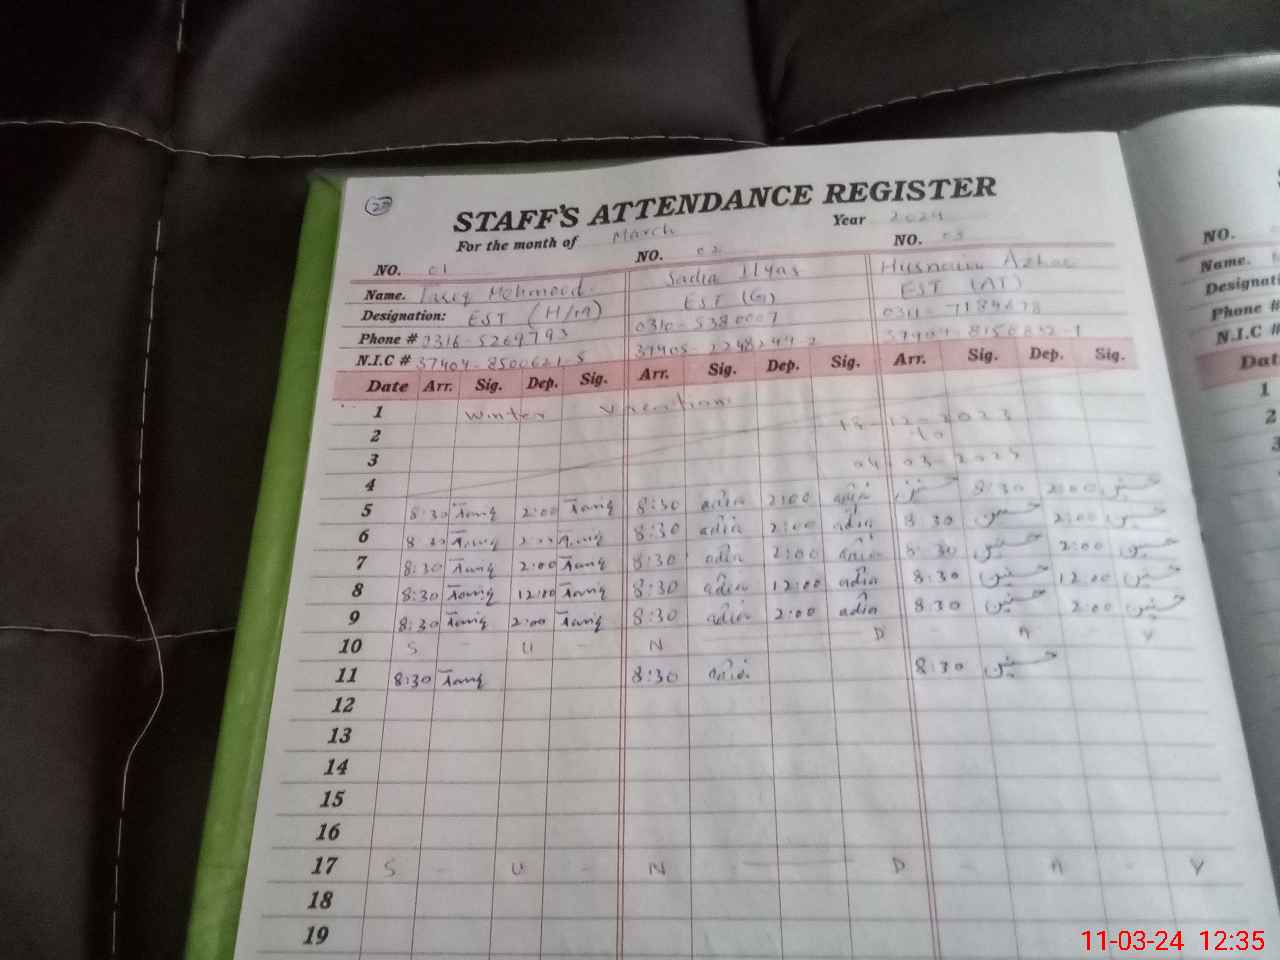 22
STAFF'S ATTENDANCE REGISTER
For the month of March Year 2024
NO. 01 NO. 02 NO. 03
Name. Tariq Mehmood Sadia Ilyas Husnain Azhar
Designation: EST (H/M) EST (G) EST (AT)
Phone # 0316-5269793 0310-5380007 0311-7184678
N.I.C # 37404-8500621-5 37405-2248244-2
Date Arr. Sig. Dep. Sig. Arr. Sig. Dep. Sig. Arr. Sig. Dep. Sig.
1 Winter vacation
2 18-12-2023
to
3
4
5 8:30 Tariq 2:00 Tariq 8:30 adia 2:00 adia حسنین 8:30 2:00 حسنین
6 8:30 Tariq 2:00 Tariq 8:30 adia 2:00 adia 8:30 حسنین 2:00 حسنین
7 8:30 Tariq 2:00 Tariq 8:30 adia 2:00 adia 8:30 حسنین 2:00 حسنین
8 8:30 Tariq 12:00 Tariq 8:30 adia 12:00 adia 8:30 حسنین 12:00 حسنین
9 8:30 Tariq 2:00 Tariq 8:30 adia 2:00 adia 8:30 حسنین 2:00 حسنین
10 S - U - N D - A - Y
11 8:30 Tariq 8:30 adia 8:30 حسنین
12
13
14
15
16
17 S - U - N D - A - Y
18
19
NO.
Name.
Phone #
N.I.C #
1
2
3
11-03-24 12:35